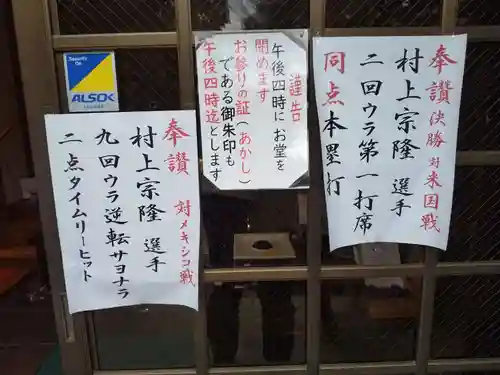 奉讃 決勝 対米国戦
村上宗隆 選手
二回ウラ第一打席
同点本塁打
謹告
午後四時にお堂を
閉めます
お参りの証（あかし）
である御朱印も
午後四時迄とします
Security On
ALSOK
奉讃 対メキシコ戦
村上宗隆 選手
九回ウラ逆転サヨナラ
二点タイムリーヒット